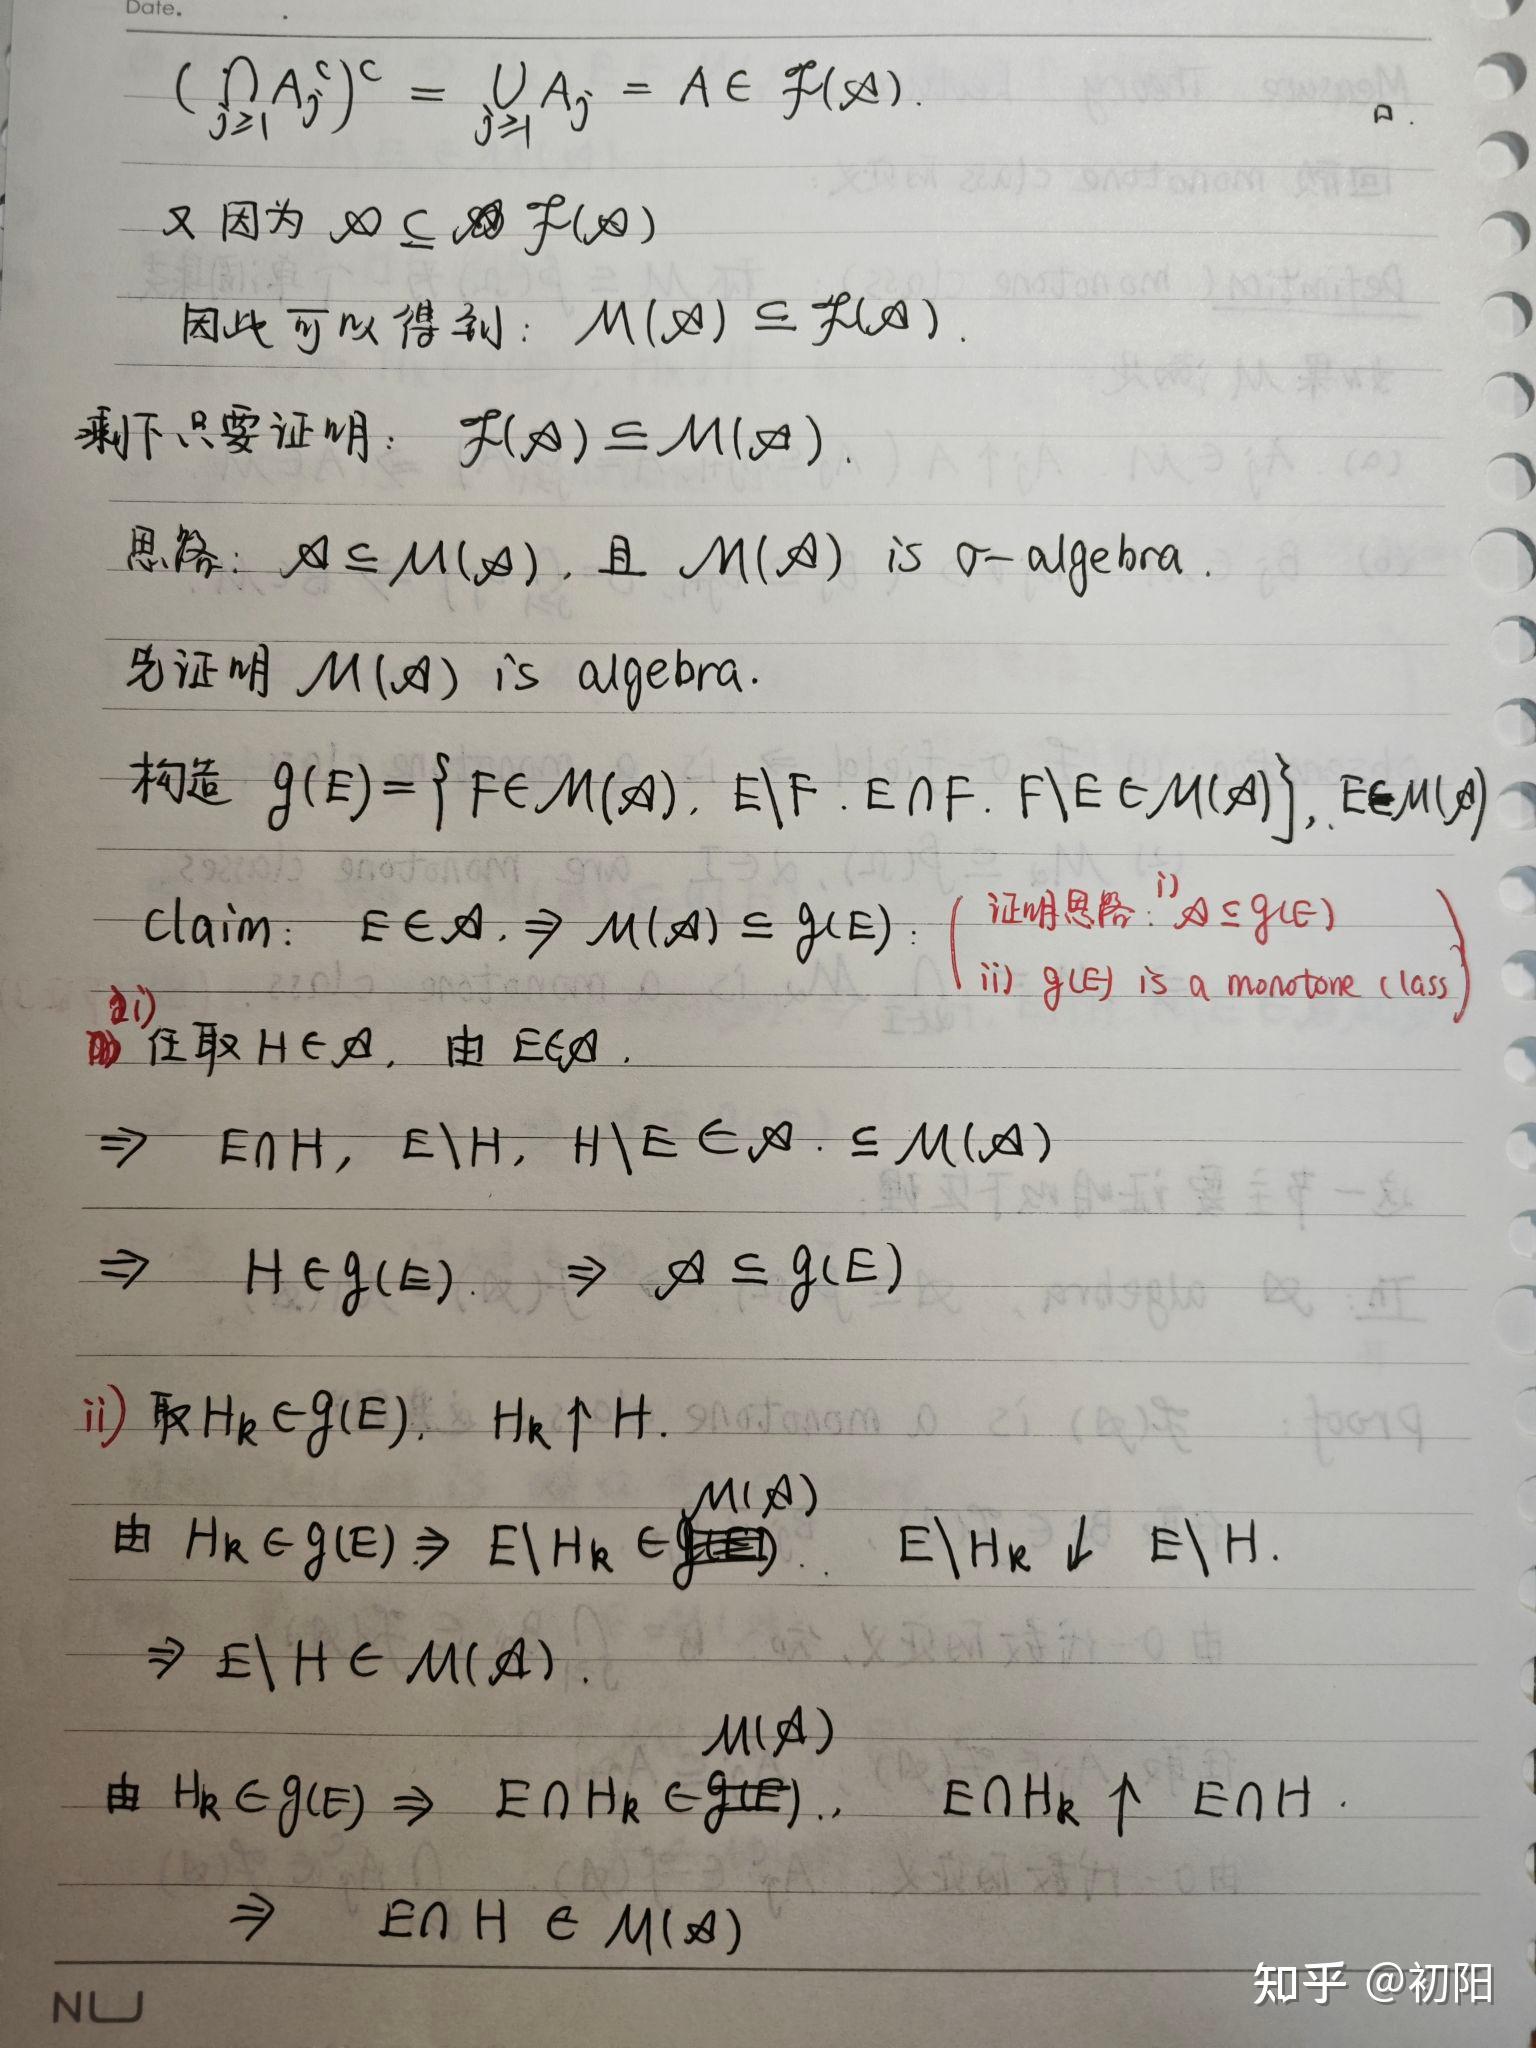 Date.
(⋂_{j≥1} A_j^c)^c = ⋃_{j≥1} A_j = A ∈ ℱ(𝒜).
□.
又因为 𝒜 ⊆ ℱ(𝒜)
因此可以得到: M(𝒜) ⊆ ℱ(𝒜).
剩下只要证明: ℱ(𝒜) ⊆ M(𝒜).
思路: 𝒜 ⊆ M(𝒜), 且 M(𝒜) is σ-algebra.
先证明 M(𝒜) is algebra.
构造 g(E) = { F ∈ M(𝒜). E\F. E∩F. F\E ∈ M(𝒜)}, E∈M(𝒜)
Claim: E ∈ 𝒜. ⇒ M(𝒜) ⊆ g(E):
(证明思路: i) 𝒜 ⊆ g(E)
ii) g(E) is a monotone class)
i) 任取 H ∈ 𝒜, 由 E∈𝒜.
⇒ E∩H, E\H, H\E ∈ 𝒜. ⊆ M(𝒜)
⇒ H ∈ g(E). ⇒ 𝒜 ⊆ g(E)
ii) 取 H_k ∈ g(E). H_k ↑ H.
由 H_k ∈ g(E) ⇒ E\H_k ∈ M(𝒜). E\H_k ↓ E\H.
⇒ E\H ∈ M(𝒜).
由 H_k ∈ g(E) ⇒ E∩H_k ∈ M(𝒜)., E∩H_k ↑ E∩H.
⇒ E∩H ∈ M(𝒜)
NU
知乎 @初阳